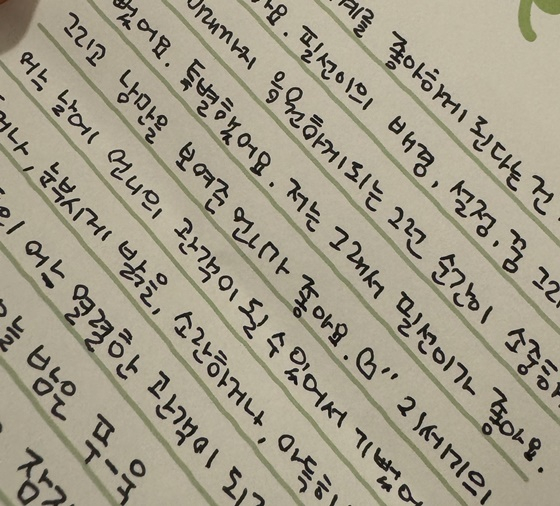 계를 좋아하게 된다는 건
요. 필선이의 배경, 설정, 꿈 그
미래까지 응원하게 되는 그런 순간이 소중해
했어요. 특별했어요. 저는 그래서 필선이가 좋아요.
그리고 낭만을 보여준 언니가 좋아요. 21세기의
어느 날에 언니의 관객이 될 수 있어서 기뻤어
거나, 눈부시게 밝을, 소란하거나, 아득히
의 어느 열렬한 관객이 되기
밤은 푸